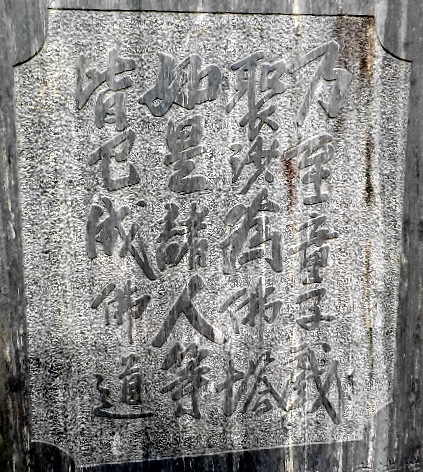 乃至童子戲
聚沙為佛塔
如是諸人等
皆已成佛道